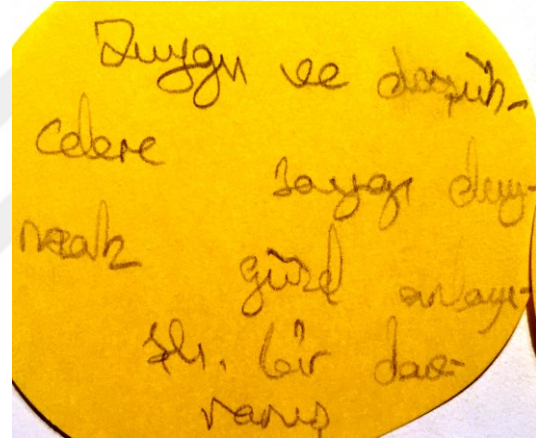 Duygu ve düşün-
celere saygı duy-
mak güzel anlayı-
şlı. bir dav-
ranış